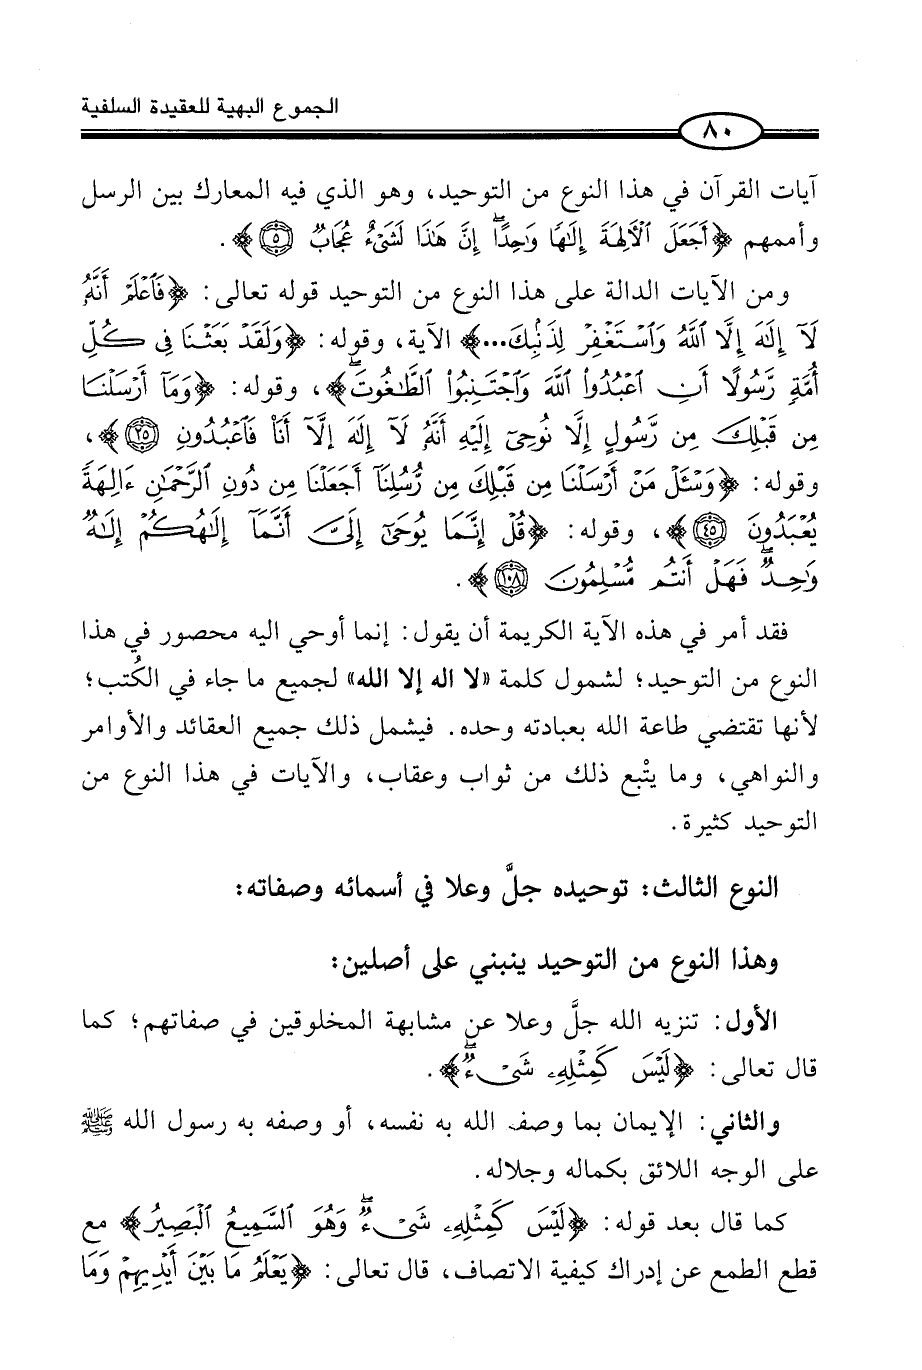 الجموع البهية للعقيدة السلفية
٨٠
آيات القرآن في هذا النوع من التوحيد، وهو الذي فيه المعارك بين الرسل
وأممهم ﴿أَجَعَلَ ٱلْآلِهَةَ إِلَٰهًا وَٰحِدًاۖ إِنَّ هَٰذَا لَشَىْءٌ عُجَابٌ ۝٥﴾.
ومن الآيات الدالة على هذا النوع من التوحيد قوله تعالى: ﴿فَٱعْلَمْ أَنَّهُۥ
لَآ إِلَٰهَ إِلَّا ٱللَّهُ وَٱسْتَغْفِرْ لِذَنۢبِكَ...﴾ الآية، وقوله: ﴿وَلَقَدْ بَعَثْنَا فِى كُلِّ
أُمَّةٍ رَّسُولًا أَنِ ٱعْبُدُوا۟ ٱللَّهَ وَٱجْتَنِبُوا۟ ٱلطَّٰغُوتَۖ﴾، وقوله: ﴿وَمَآ أَرْسَلْنَا
مِن قَبْلِكَ مِن رَّسُولٍ إِلَّا نُوحِىٓ إِلَيْهِ أَنَّهُۥ لَآ إِلَٰهَ إِلَّآ أَنَا۠ فَٱعْبُدُونِ ۝٢٥﴾،
وقوله: ﴿وَسْـَٔلْ مَنْ أَرْسَلْنَا مِن قَبْلِكَ مِن رُّسُلِنَآ أَجَعَلْنَا مِن دُونِ ٱلرَّحْمَٰنِ ءَالِهَةً
يُعْبَدُونَ ۝٤٥﴾، وقوله: ﴿قُلْ إِنَّمَا يُوحَىٰٓ إِلَىَّ أَنَّمَآ إِلَٰهُكُمْ إِلَٰهٌ
وَٰحِدٌۖ فَهَلْ أَنتُم مُّسْلِمُونَ ۝١٠٨﴾.
فقد أمر في هذه الآية الكريمة أن يقول: إنما أوحي اليه محصور في هذا
النوع من التوحيد؛ لشمول كلمة «لا اله إلا الله» لجميع ما جاء في الكُتب؛
لأنها تقتضي طاعة الله بعبادته وحده. فيشمل ذلك جميع العقائد والأوامر
والنواهي، وما يتْبع ذلك من ثواب وعقاب، والآيات في هذا النوع من
التوحيد كثيرة.
النوع الثالث: توحيده جلَّ وعلا في أسمائه وصفاته:
وهذا النوع من التوحيد ينبني على أصلين:
الأول: تنزيه الله جلَّ وعلا عن مشابهة المخلوقين في صفاتهم؛ كما
قال تعالى: ﴿لَيْسَ كَمِثْلِهِۦ شَىْءٌۖ﴾.
والثاني: الإيمان بما وصف الله به نفسه، أو وصفه به رسول الله ﷺ
على الوجه اللائق بكماله وجلاله.
كما قال بعد قوله: ﴿لَيْسَ كَمِثْلِهِۦ شَىْءٌۖ وَهُوَ ٱلسَّمِيعُ ٱلْبَصِيرُ﴾ مع
قطع الطمع عن إدراك كيفية الاتصاف، قال تعالى: ﴿يَعْلَمُ مَا بَيْنَ أَيْدِيهِمْ وَمَا